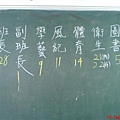 班長 28
副班長 1
學藝 9
風紀 11
體育 14
衛生
圖書 5